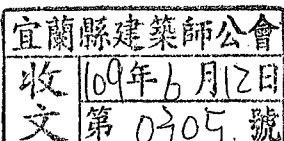 宜蘭縣建築師公會
收文
109年6月12日
第0305號